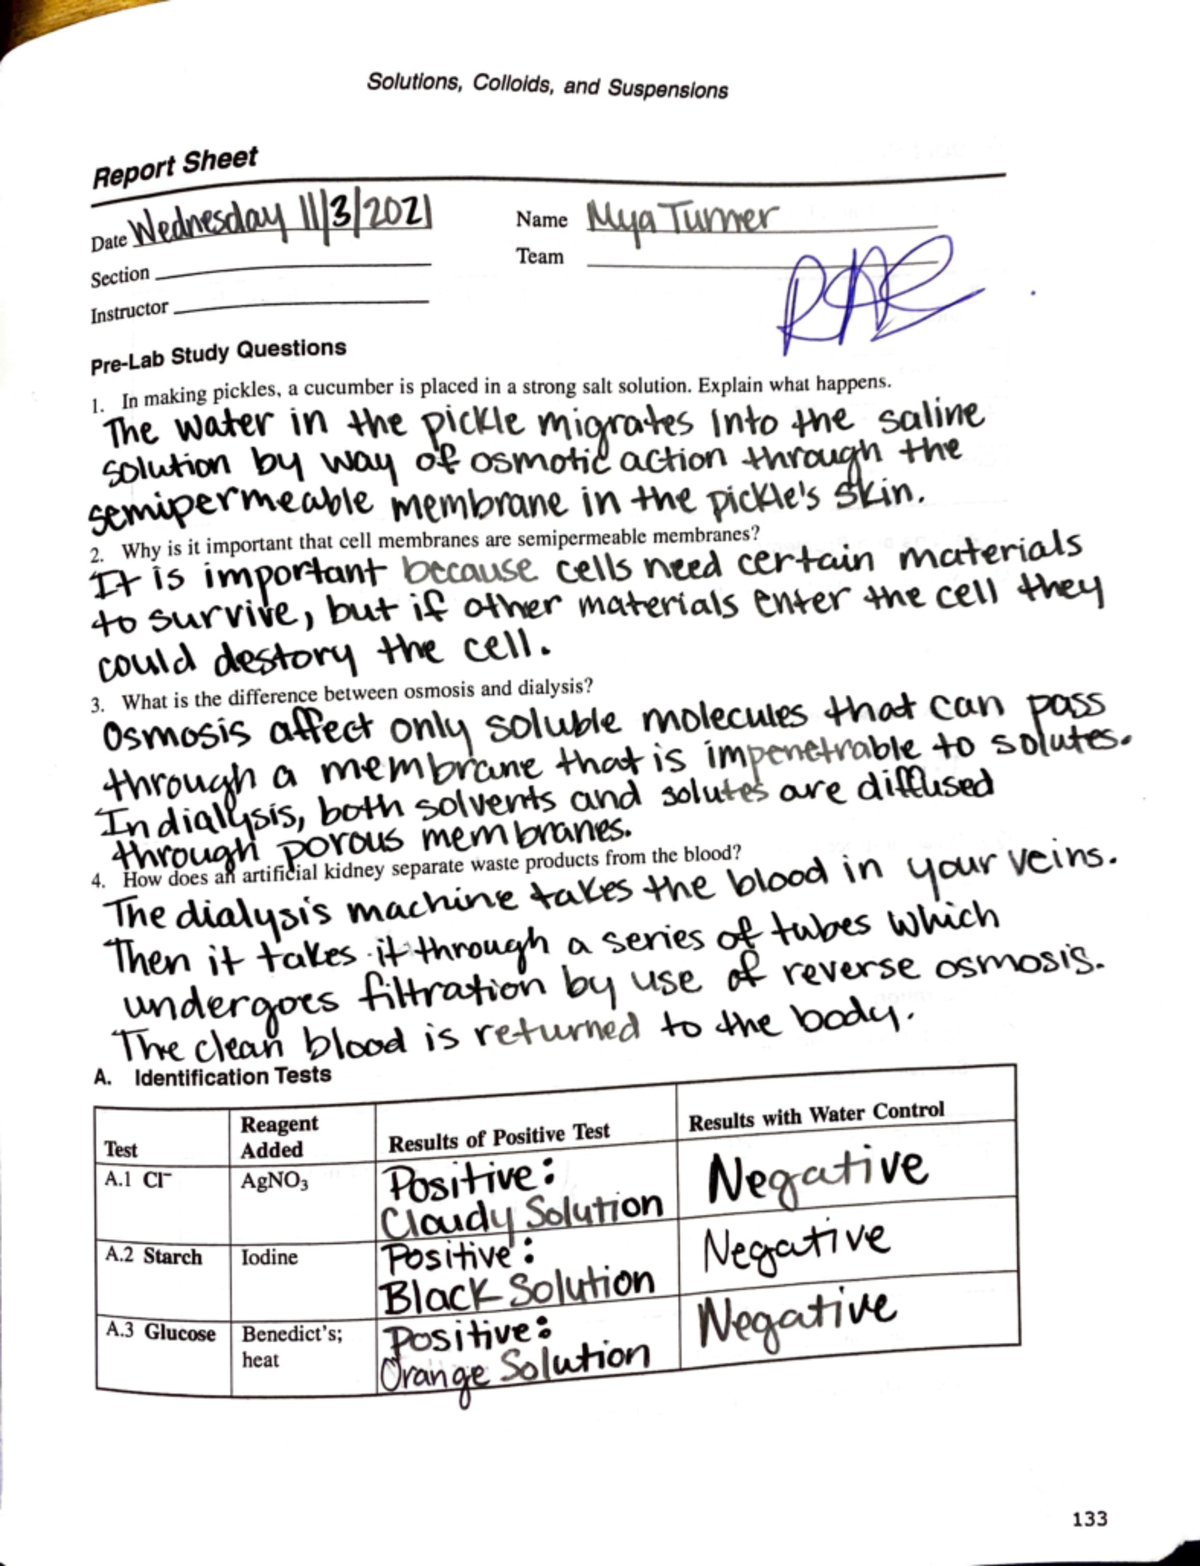 Solutions, Colloids, and Suspensions
Report Sheet
Date Wednesday 11/3/2021
Name Mya Turner
Section
Team
Instructor
Pre-Lab Study Questions
1. In making pickles, a cucumber is placed in a strong salt solution. Explain what happens.
The water in the pickle migrates into the saline
solution by way of osmotic action through the
semipermeable membrane in the pickle's skin.
2. Why is it important that cell membranes are semipermeable membranes?
It is important because cells need certain materials
to survive, but if other materials enter the cell they
could destory the cell.
3. What is the difference between osmosis and dialysis?
Osmosis affect only soluble molecules that can pass
through a membrane that is impenetrable to solutes.
In dialysis, both solvents and solutes are diffused
through porous membranes.
4. How does an artificial kidney separate waste products from the blood?
The dialysis machine takes the blood in your veins.
Then it takes it through a series of tubes which
undergoes filtration by use of reverse osmosis.
The clean blood is returned to the body.
A. Identification Tests
Test Reagent Added Results of Positive Test Results with Water Control
A.1 Cl⁻ AgNO₃ Positive: Cloudy Solution Negative
A.2 Starch Iodine Positive: Black Solution Negative
A.3 Glucose Benedict's; heat Positive: Orange Solution Negative
133